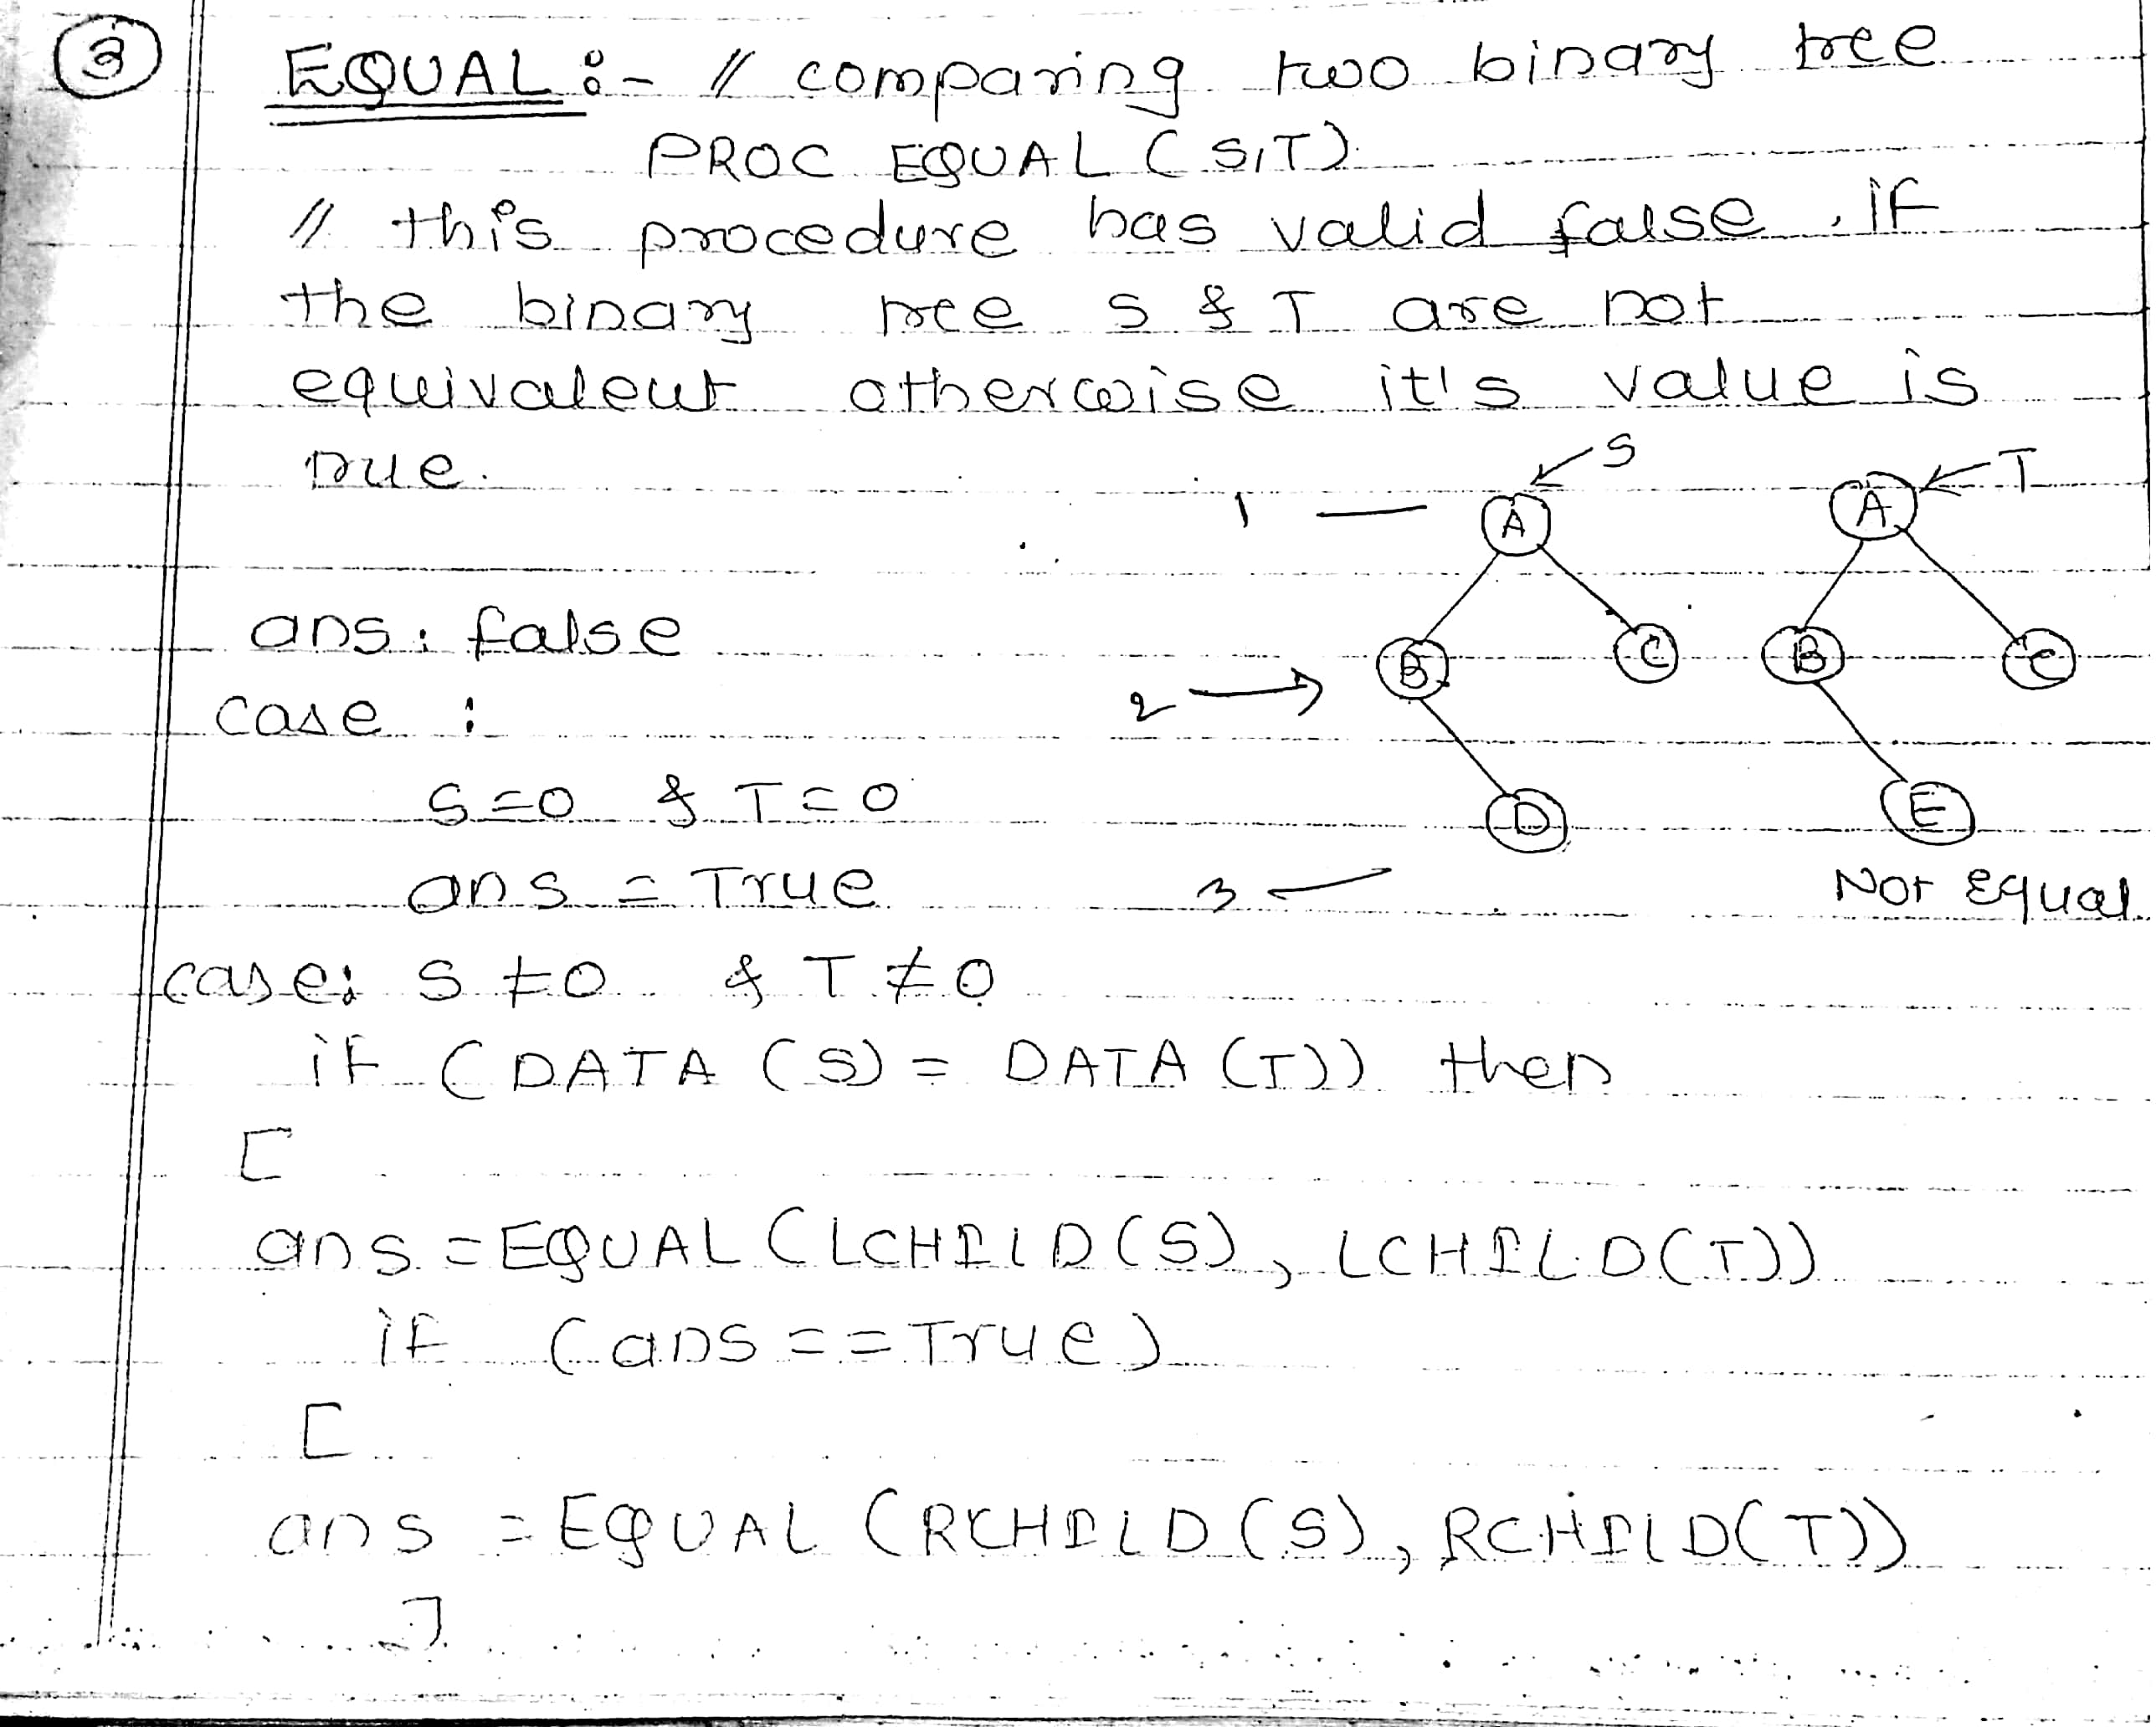 3
EQUAL :- // comparing two binary tree
PROC EQUAL (S,T)
// this procedure has valid false if
the binary tree S & T are not
equivalent otherwise it's value is
true.
S
T
1 —
A
A
ans : false
B
C
B
C
2 →
case :
S=0 & T=0
D
E
ans = True
3 —
Not Equal
case: S ≠0 & T ≠0
if (DATA (S) = DATA (T)) then
[
ans = EQUAL (LCHILD(S), LCHILD(T))
if (ans == True)
[
ans = EQUAL (RCHILD (S), RCHILD(T))
]